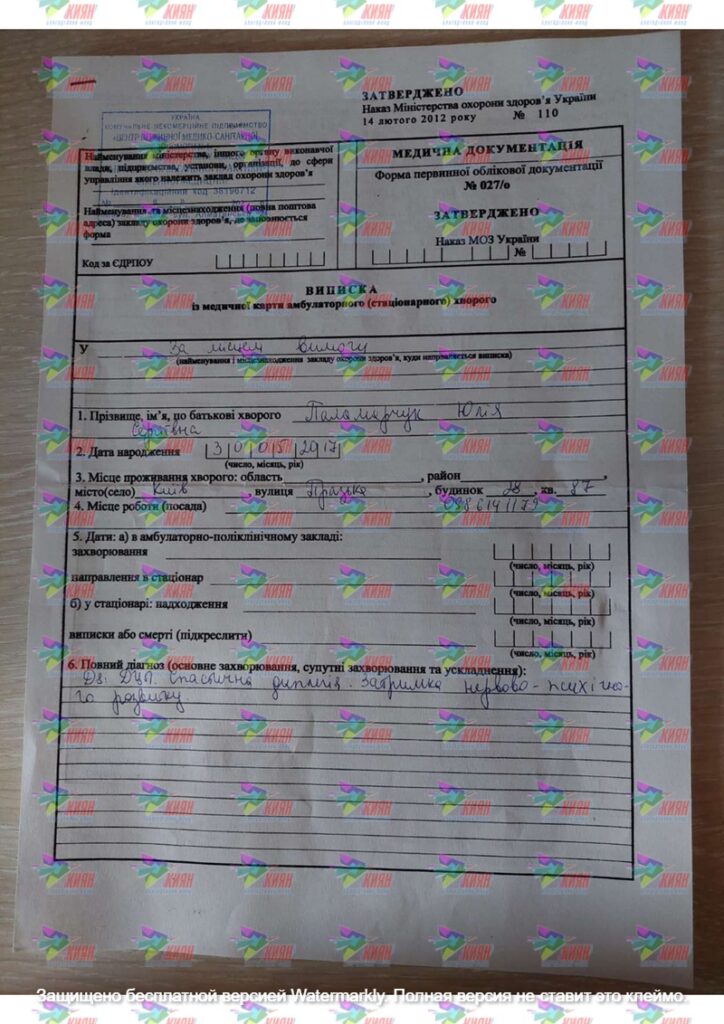 ЗАТВЕРДЖЕНО
Наказ Міністерства охорони здоров'я України
14 лютого 2012 року № 110
УКРАЇНА
КОМУНАЛЬНЕ НЕКОМЕРЦІЙНЕ ПІДПРИЄМСТВО
«ЦЕНТР ПЕРВИННОЇ МЕДИКО-САНІТАРНОЇ
Ідентифікаційний код 38196712
Найменування міністерства, іншого органу виконавчої
влади, підприємства, установи, організації, до сфери
управління якого належить заклад охорони здоров'я
Найменування та місцезнаходження (повна поштова
адреса) закладу охорони здоров'я, де заповнюється
форма
Код за ЄДРПОУ
МЕДИЧНА ДОКУМЕНТАЦІЯ
Форма первинної облікової документації
№ 027/о
ЗАТВЕРДЖЕНО
Наказ МОЗ України
№
ВИПИСКА
із медичної карти амбулаторного (стаціонарного) хворого
У За місцем вимоги
(найменування і місцезнаходження закладу охорони здоров'я, куди направляється виписка)
1. Прізвище, ім'я, по батькові хворого Паламарчук Юлія
Сергіївна
2. Дата народження 30 05 2017
(число, місяць, рік)
3. Місце проживання хворого: область , район ,
місто(село) Київ , вулиця Празька , будинок 28 , кв. 87
4. Місце роботи (посада) 0986141179
5. Дати: а) в амбулаторно-поліклінічному закладі:
захворювання
(число, місяць, рік)
направлення в стаціонар
(число, місяць, рік)
б) у стаціонарі: надходження
(число, місяць, рік)
виписки або смерті (підкреслити)
(число, місяць, рік)
6. Повний діагноз (основне захворювання, супутні захворювання та ускладнення):
Дз: ДЦП. Спастична диплегія. Затримка нервово-психічно-
го розвитку.
КИЯН
БЛАГОДІЙНИЙ ФОНД
Защищено бесплатной версией Watermarkly. Полная версия не ставит это клеймо.